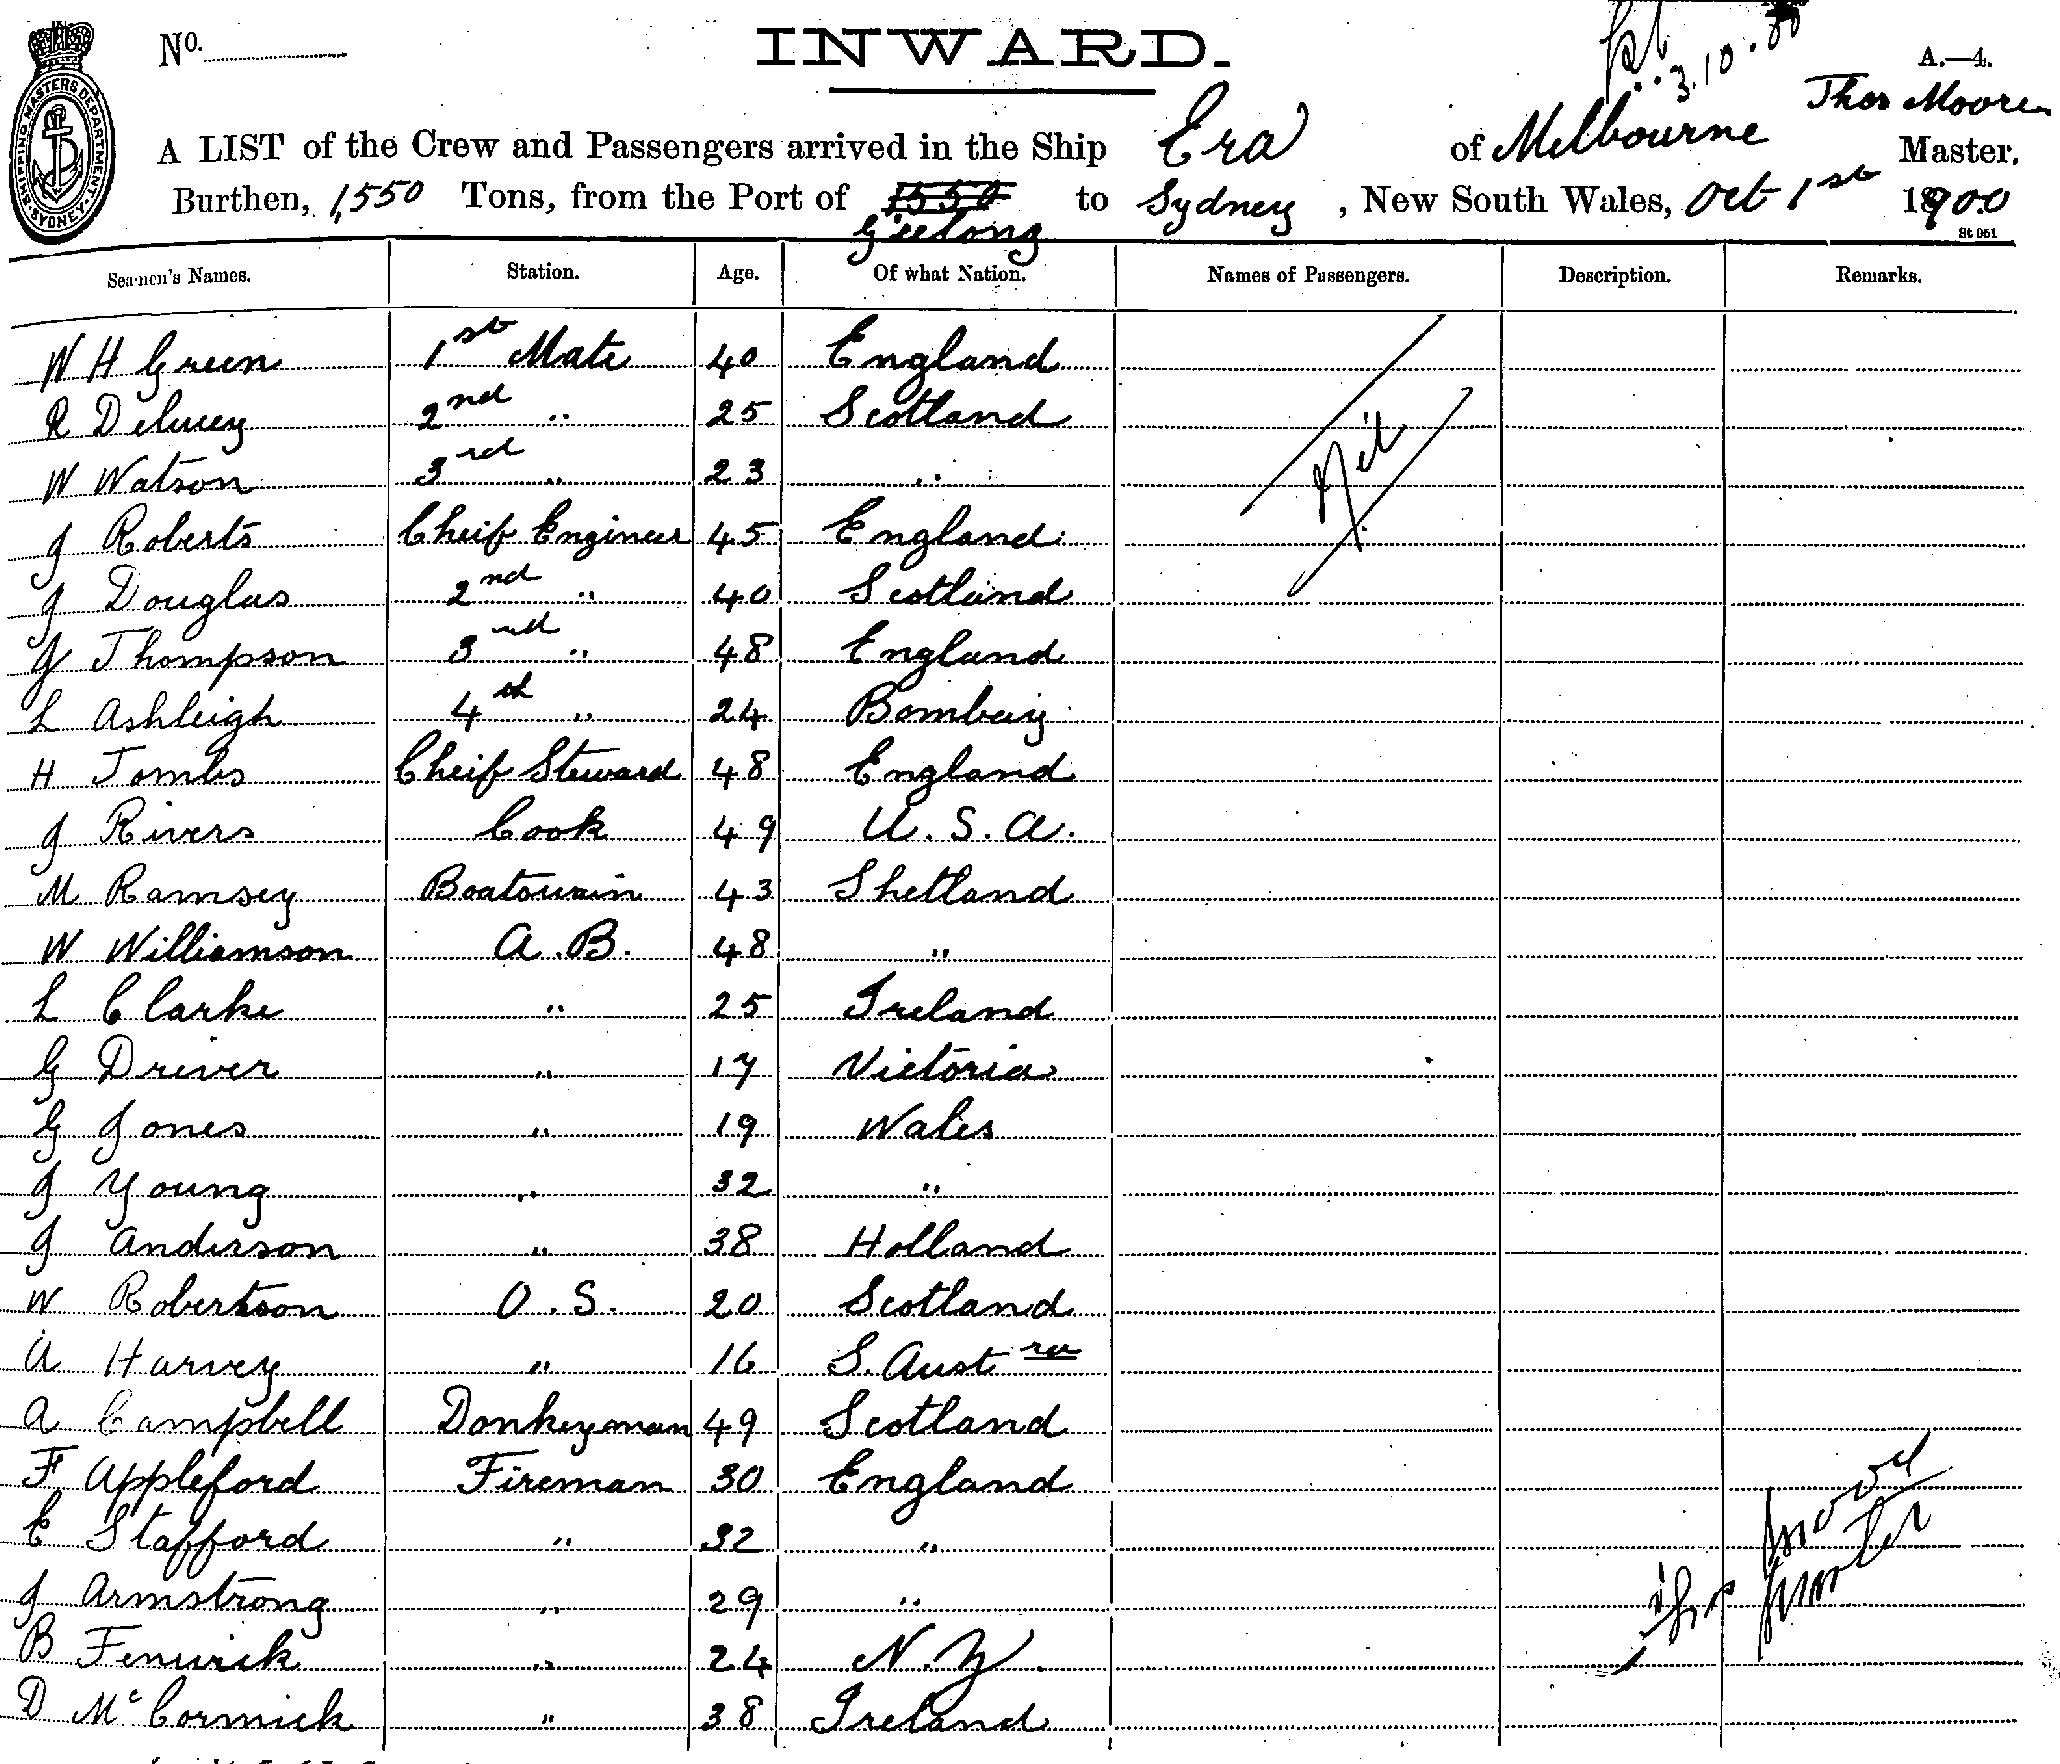 SHIPPING MASTERS DEPARTMENT. SYDNEY.
No.
INWARD.
3.10.00
A.—4.
Thos Moore
A LIST of the Crew and Passengers arrived in the Ship Era of Melbourne Master,
Burthen, 1,550 Tons, from the Port of 1550 to Sydney, New South Wales, Oct 1st 1900
Geelong
St 951
Seamen's Names. Station. Age. Of what Nation. Names of Passengers. Description. Remarks.
W H Green 1st Mate 40 England
R Delucey 2nd " 25 Scotland
Nil
W Watson 3rd " 23 "
J Roberts Cheif Engineer 45 England
J Douglas 2nd " 40 Scotland
J Thompson 3rd " 48 England
L Ashleigh 4th " 24 Bombay
H Tombs Cheif Steward 48 England
J Rivers Cook 49 U.S.A.
M Ramsey Boatswain 43 Shetland
W Williamson A.B. 48 "
L Clarke " 25 Ireland
G Driver " 17 Victoria
G Jones " 19 Wales
J Young " 32 "
J Anderson " 38 Holland
W Robertson O.S. 20 Scotland
A Harvey " 16 S. Austra
A Campbell Donkeyman 49 Scotland
F Appleford Fireman 30 England
E Stafford " 32 "
J Armstrong " 29 "
B Fenwick " 24 N.Z.
D McCormick " 38 Ireland
Thos Moore
Master